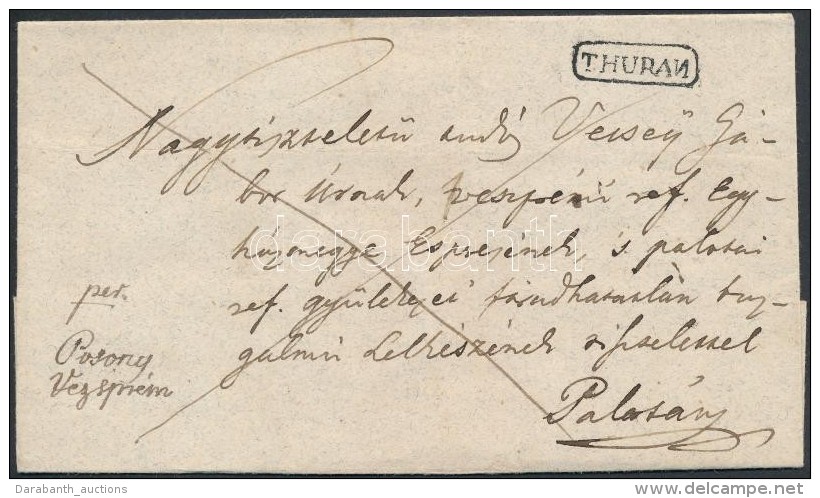 THURAN
Nagytiszteletű tudós Vecsey Gá-
bor Úrnak, veszprémi ref. Egy-
házmegye Esperesének, s palotai
ref. gyülekezet fáradhatatlan buz-
galmú Lelkészének tisztelettel
Palotán
per.
Posony
Vezsprém
darabanth
Darabanth_auctions
delcampe.net